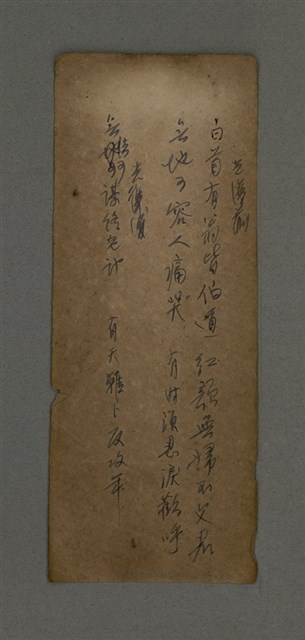 光復前
白首有翁皆伯道 紅顏無婦不文君
無地可容人痛哭 有時須忍淚歡呼
光復後
無機可謀終老計 有天難卜反攻年